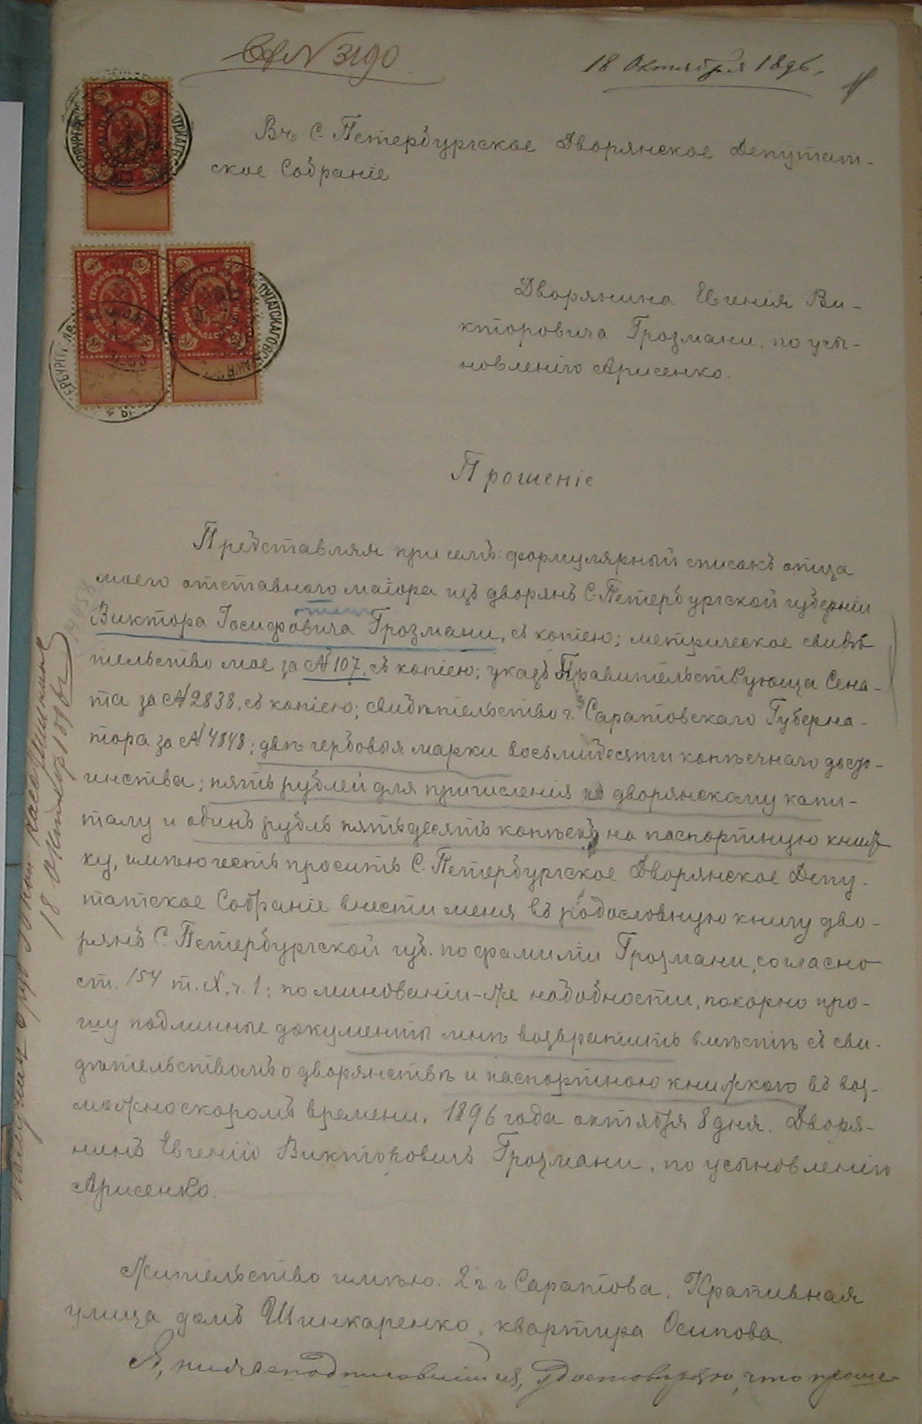 № 3190
18 Октября 1896.
Въ С Петербургское Дворянское Депутат-
ское Собраніе
Дворянина Евгенія Ви-
кторовича Грозмани, по усы-
новленію Арисенко.
Прошеніе
Представляя при семъ: формулярный списокъ отца
моего отставного маіора изъ дворянъ С Петербургской губерніи
Виктора Іосифовича Грозмани, съ копіею; метрическое свидѣ
тельство мое за № 107, съ копіею; указъ Правительствующа Сена-
та за № 2838, съ копіею; свидѣтельство г. Саратовскаго Губерна-
тора за № 4848; двѣ гербовыя марки восьмидесяти копѣечнаго досто-
инства; пять рублей для причисленія къ дворянскому капи-
талу и одинъ рубль пятьдесятъ копѣекъ на паспортную книж
ку, имѣю честь просить С. Петербургское Дворянское Депу-
татское Собраніе внести меня въ родословную книгу дво-
рянъ С Петербургской губ. по фамиліи Грозмани, согласно
ст. 154 т. IX, ч. 1; по минованіи-же надобности, покорно про-
шу подлинные документы мнѣ возвратить вмѣстѣ съ сви-
дѣтельствомъ о дворянствѣ и паспортною книжкою въ воз-
можно скоромъ времени. 1896 года октября 8 дня. Дворя-
нинъ Евгеній Викторовичъ Грозмани, по усыновленію
Арисенко.
Жительство имѣю. въ г Саратова, Крапивная
улица домъ Шинкаренко, квартира Осипова.
Я, нижеподписавшійся, удостовѣряю, что проше-
18 Октября 1896 г